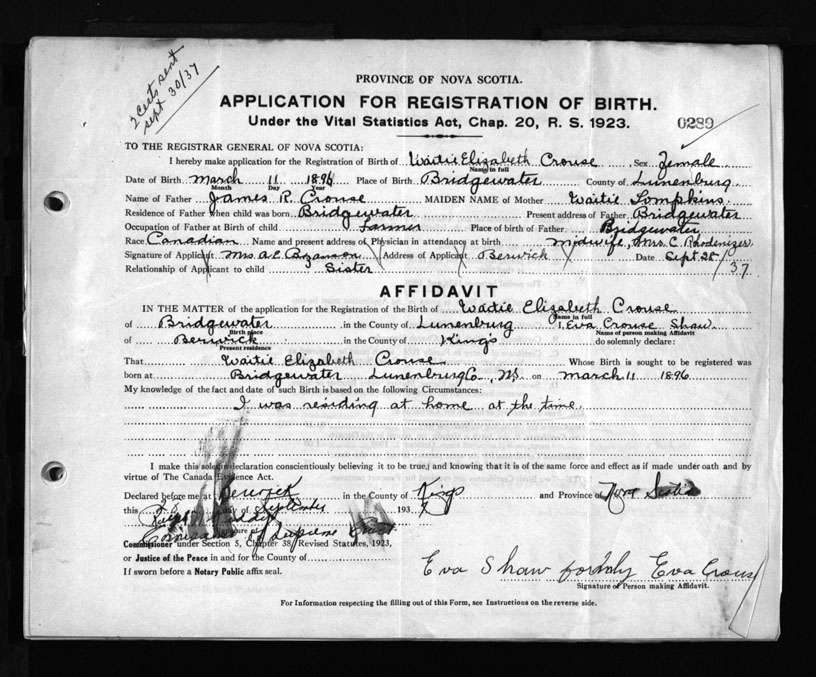 2 Certs sent
Sept 30/37
PROVINCE OF NOVA SCOTIA.
APPLICATION FOR REGISTRATION OF BIRTH.
Under the Vital Statistics Act, Chap. 20, R. S. 1923.
0289
TO THE REGISTRAR GENERAL OF NOVA SCOTIA:
I hereby make application for the Registration of Birth of Waitie Elizabeth Crouse, Sex Female
Name in full
Date of Birth March 11 1896 Place of Birth Bridgewater County of Lunenburg
Month Day Year
Name of Father James R. Crouse MAIDEN NAME of Mother Waitie Tompkins.
Residence of Father when child was born Bridgewater Present address of Father Bridgewater
Occupation of Father at Birth of child Farmer Place of birth of Father Bridgewater
Race Canadian Name and present address of Physician in attendance at birth Midwife, Mrs. C. Rhodenizer
Signature of Applicant Mrs A E Address of Applicant Berwick Date Sept 28/37
Relationship of Applicant to child Sister
AFFIDAVIT
IN THE MATTER of the application for the Registration of the Birth of Waitie Elizabeth Crouse
Name in full
of Bridgewater in the County of Lunenburg I, Eva Crouse Shaw
Birth place Name of person making Affidavit
of Berwick in the County of Kings do solemnly declare:
Present residence
That Waitie Elizabeth Crouse Whose Birth is sought to be registered was
born at Bridgewater Lunenburg Co., N.S. on March 11 1896
My knowledge of the fact and date of such Birth is based on the following Circumstances:
I was residing at home at the time.
I make this solemn declaration conscientiously believing it to be true, and knowing that it is of the same force and effect as if made under oath and by
virtue of The Canada Evidence Act.
Declared before me at Berwick in the County of Kings and Province of Nova Scotia
this day of September 1937
Supreme Court
Commissioner under Section 5, Chapter 38, Revised Statutes, 1923,
or Justice of the Peace in and for the County of
If sworn before a Notary Public affix seal.
Eva Shaw formerly Eva Crouse
Signature of Person making Affidavit.
For Information respecting the filling out of this Form, see Instructions on the reverse side.